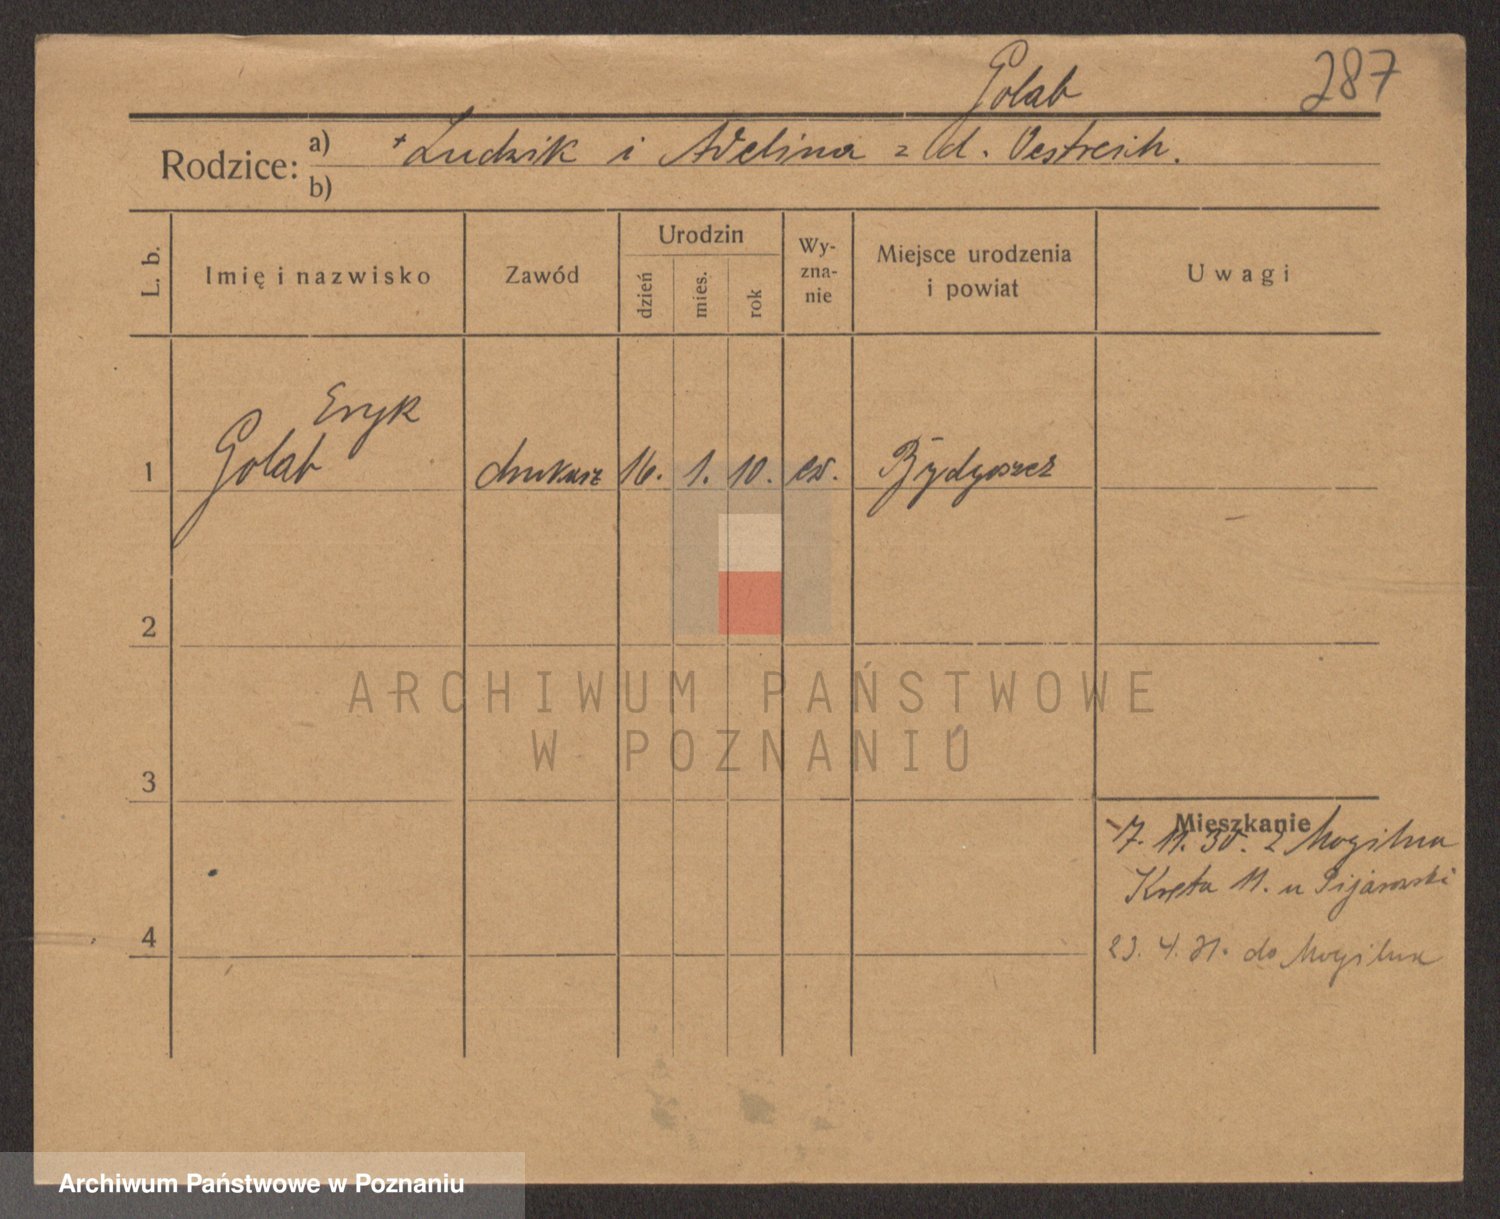 287
Golab
Rodzice: a) + Ludwik i Adelina z d. Oestreich.
b)
L. b. Imię i nazwisko Zawód Urodzin dzień mies. rok Wy-zna-nie Miejsce urodzenia i powiat Uwagi
Eryk
1 Golab drukarz 16. 1. 10. ew. Bydgoszcz
2
ARCHIWUM PAŃSTWOWE
W POZNANIU
3
Mieszkanie
17. 11. 30. z Mogilna
Kręta 11. u Pijarowski
4
23. 4. 31. do Mogilna
Archiwum Państwowe w Poznaniu